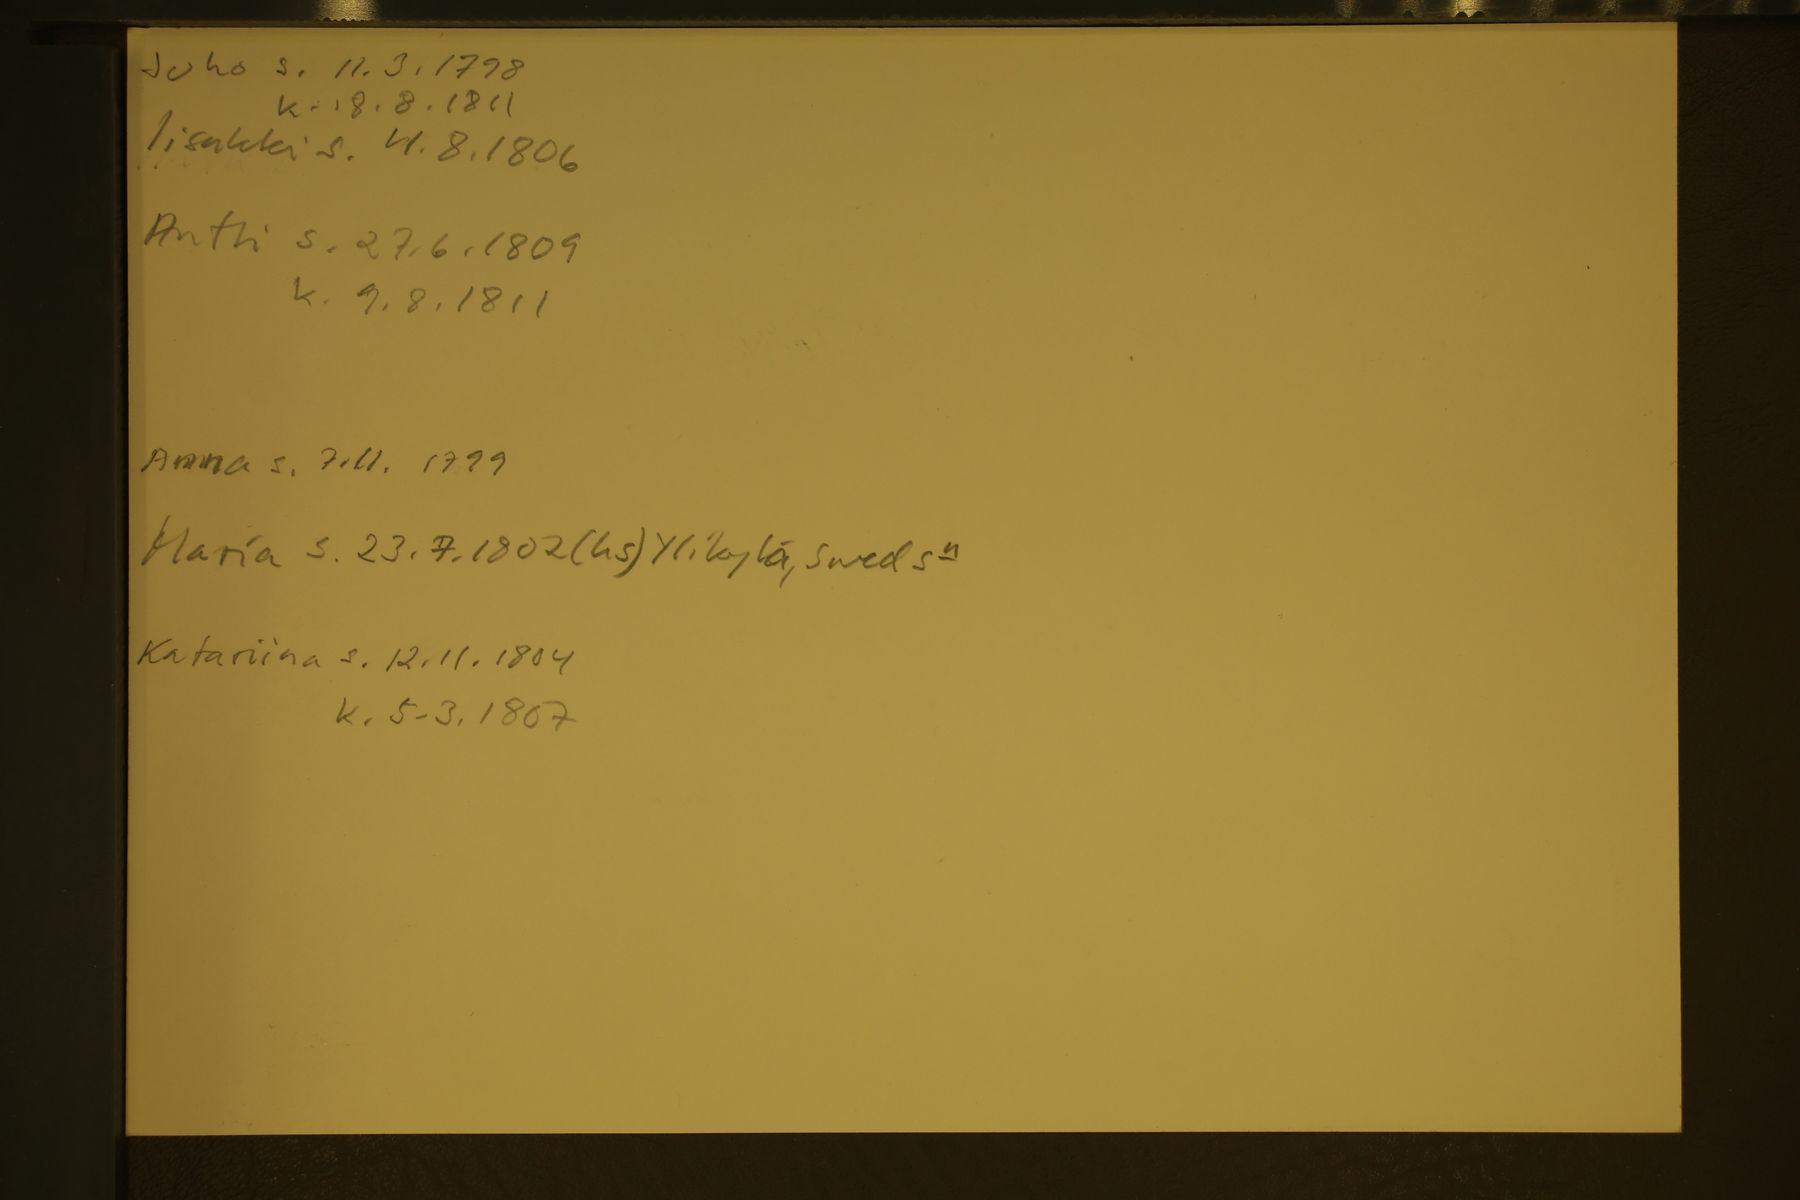 Juho s. 11.3.1798
k. 18.8.1811
Iisakki s. 4.8.1806
Antti s. 27.6.1809
k. 9.8.1811
Anna s. 7.11. 1799
Maria s. 23.7.1802 (hs) Ylikylä, Swedsn
Katariina s. 12.11.1804
k. 5-3.1807